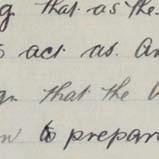 that as the
act as
that the
to prepar